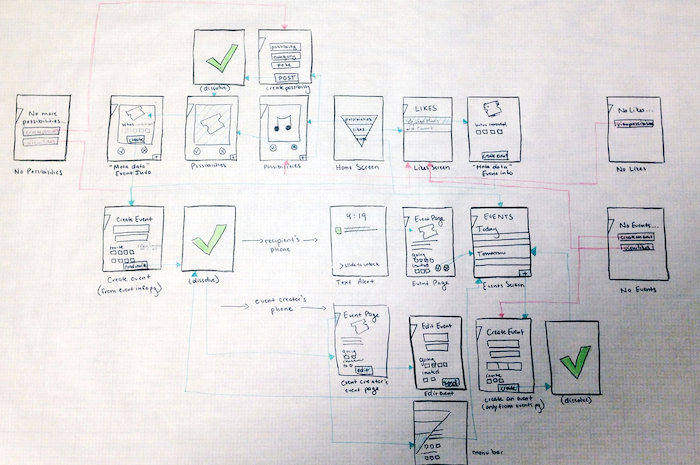 (dissolve)
possibility
category
note
POST
create possibility
No more
possibilities...
No Possibilities
create
"Meta data"
Event Info
Possibilities
Possibilities
possibilities
likes
Home Screen
LIKES
Likes Screen
create event
"Meta data"
Event info
No Likes...
No Likes
Create Event
invite
Create event
(from event info pg)
(dissolve)
recipient's
phone
event creator's
phone
4:19
slide to unlock
Text Alert
Event Page
going
invited
Event Page
EVENTS
Today
Tomorrow
Events Screen
No Events...
No Events
Event Page
going
edit
Event creator's
event page
Edit Event
going
invited
Edit Event
Create Event
invite
create
create an event
(only from events pg)
(dissolve)
menu bar